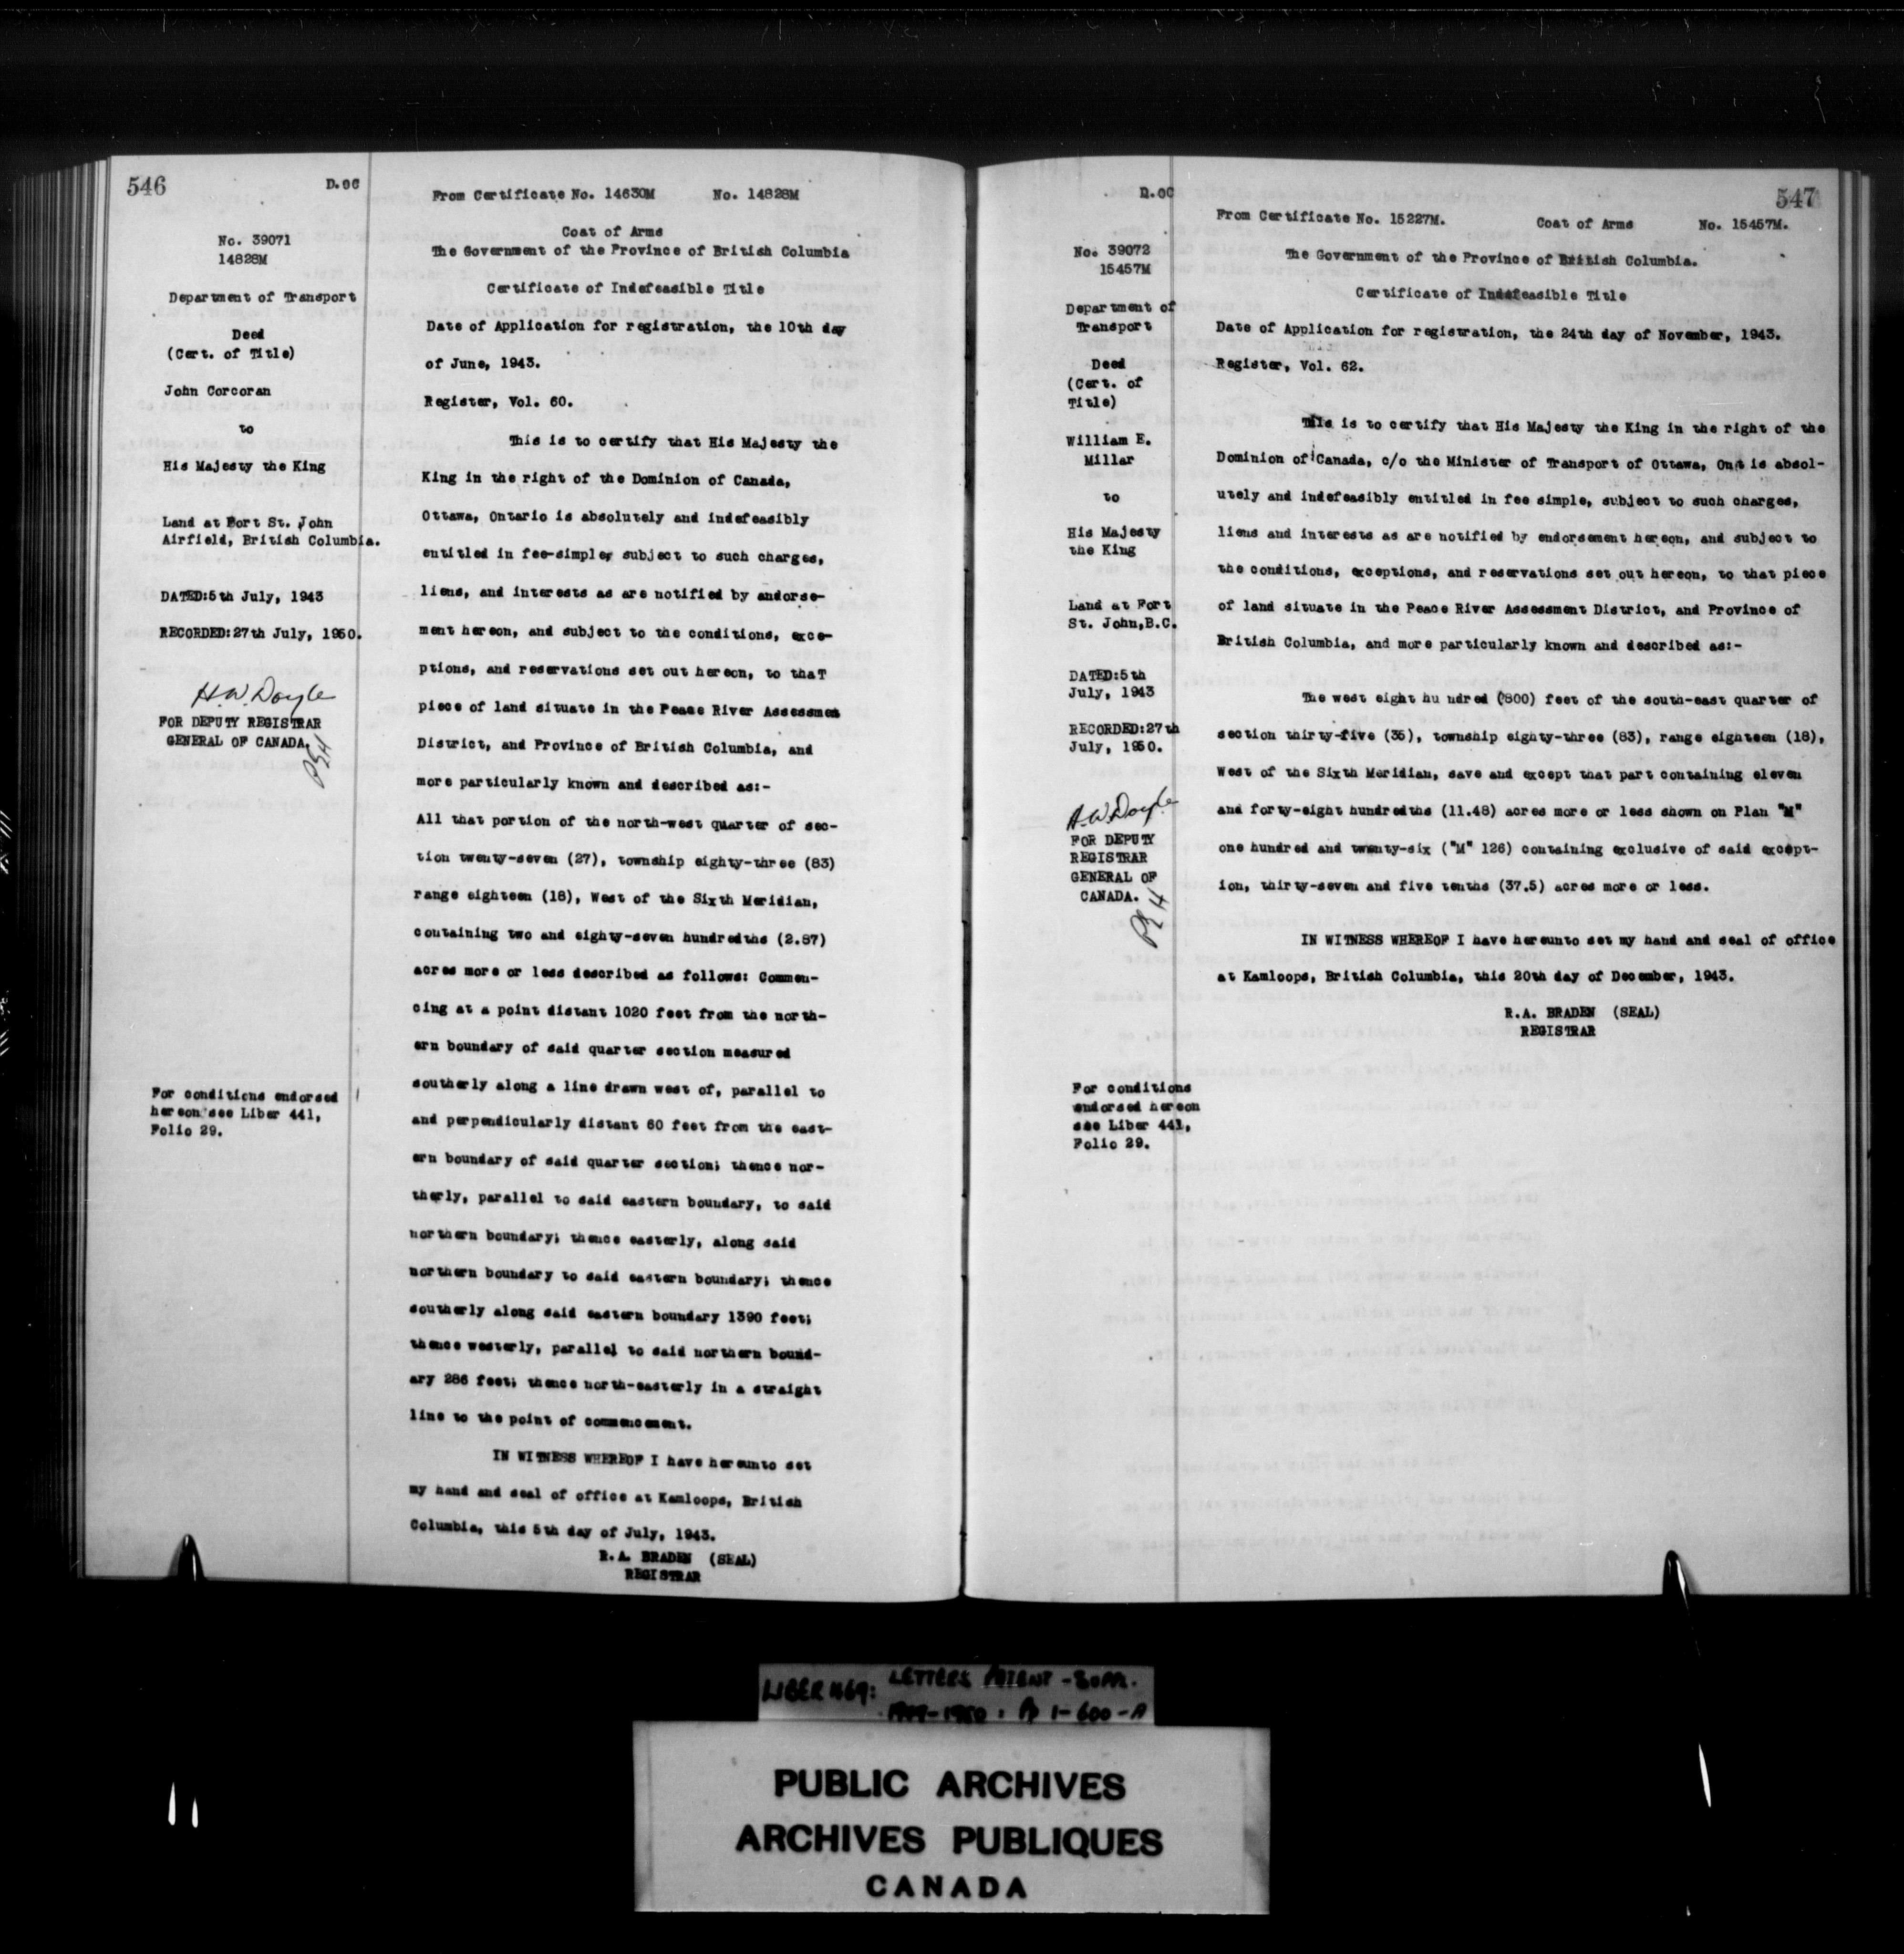 546
D.OC
No. 39071
14828M
Department of Transport
Deed
(Cert. of Title)
John Corcoran
to
His Majesty the King
Land at Fort St. John
Airfield, British Columbia.
DATED:5th July, 1943
RECORDED:27th July, 1950.
H.W.Doyle
FOR DEPUTY REGISTRAR
GENERAL OF CANADA.
For conditions endorsed
hereon see Liber 441,
Folio 29.
From Certificate No. 14630M No. 14828M
Coat of Arms
The Government of the Province of British Columbia
Certificate of Indefeasible Title
Date of Application for registration, the 10th day
of June, 1943.
Register, Vol. 60.
This is to certify that His Majesty the
King in the right of the Dominion of Canada,
Ottawa, Ontario is absolutely and indefeasibly
entitled in fee-simple, subject to such charges,
liens, and interests as are notified by endorse-
ment hereon, and subject to the conditions, exce-
ptions, and reservations set out hereon, to thaT
piece of land situate in the Peace River Assessmen
District, and Province of British Columbia, and
more particularly known and described as:-
All that portion of the north-west quarter of sec-
tion twenty-seven (27), township eighty-three (83)
range eighteen (18), West of the Sixth Meridian,
containing two and eighty-seven hundredths (2.87)
acres more or less described as follows: Commen-
cing at a point distant 1020 feet from the north-
ern boundary of said quarter section measured
southerly along a line drawn west of, parallel to
and perpendicularly distant 60 feet from the east-
ern boundary of said quarter section; thence nor-
therly, parallel to said eastern boundary, to said
northern boundary; thence easterly, along said
northern boundary to said eastern boundary; thence
southerly along said eastern boundary 1390 feet;
thence westerly, parallel to said northern bound-
ary 286 feet; thence north-easterly in a straight
line to the point of commencement.
IN WITNESS WHEREOF I have hereunto set
my hand and seal of office at Kamloops, British
Columbia, this 5th day of July, 1943.
R.A. BRADEN (SEAL)
REGISTRAR
547
D.OC
No. 39072
15457M
Department of
Transport
Deed
(Cert. of
Title)
William E.
Millar
to
His Majesty
the King
Land at Fort
St. John,B.C.
DATED:5th
July, 1943
RECORDED:27th
July, 1950.
H.W.Doyle
FOR DEPUTY
REGISTRAR
GENERAL OF
CANADA.
For conditions
endorsed hereon
see Liber 441,
Folio 29.
From Certificate No. 15227M. Coat of Arms No. 15457M.
The Government of the Province of British Columbia.
Certificate of Indefeasible Title
Date of Application for registration, the 24th day of November, 1943.
Register, Vol. 62.
This is to certify that His Majesty the King in the right of the
Dominion of Canada, c/o the Minister of Transport of Ottawa, Ont is absol-
utely and indefeasibly entitled in fee simple, subject to such charges,
liens and interests as are notified by endorsement hereon, and subject to
the conditions, exceptions, and reservations set out hereon, to that piece
of land situate in the Peace River Assessment District, and Province of
British Columbia, and more particularly known and described as:-
The west eight hu ndred (800) feet of the south-east quarter of
section thirty-five (35), township eighty-three (83), range eighteen (18),
West of the Sixth Meridian, save and except that part containing eleven
and forty-eight hundredths (11.48) acres more or less shown on Plan "M"
one hundred and twenty-six ("M" 126) containing exclusive of said except-
ion, thirty-seven and five tenths (37.5) acres more or less.
IN WITNESS WHEREOF I have hereunto set my hand and seal of office
at Kamloops, British Columbia, this 20th day of December, 1943.
R.A. BRADEN (SEAL)
REGISTRAR
LIBER 469: LETTERS PATENT - SUPP.
1949-1950 : Pp 1-600-A
PUBLIC ARCHIVES
ARCHIVES PUBLIQUES
CANADA